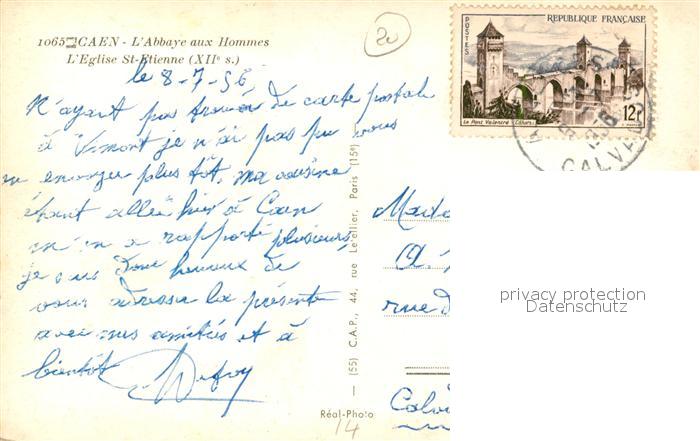 1065 CAEN - L'Abbaye aux Hommes
L'Eglise St-Etienne (XIIe s.)
20
le 8-7-56
N'ayant pas trouvé de carte postale
à Vimont je n'ai pas pu vous
en envoyer plus tôt, ma cousine
étant allée hier à Caen
m'en a rapporté plusieurs,
je suis donc heureux de
vous adresser la présente
avec mes amitiés et à
bientôt
REPUBLIQUE FRANÇAISE
POSTES
12F
Le Pont Valentré Cahors
CALV
rue
Calv
(55) C.A.P., 44, rue Letellier, Paris (15e)
Réal-Photo
14
privacy protection
Datenschutz